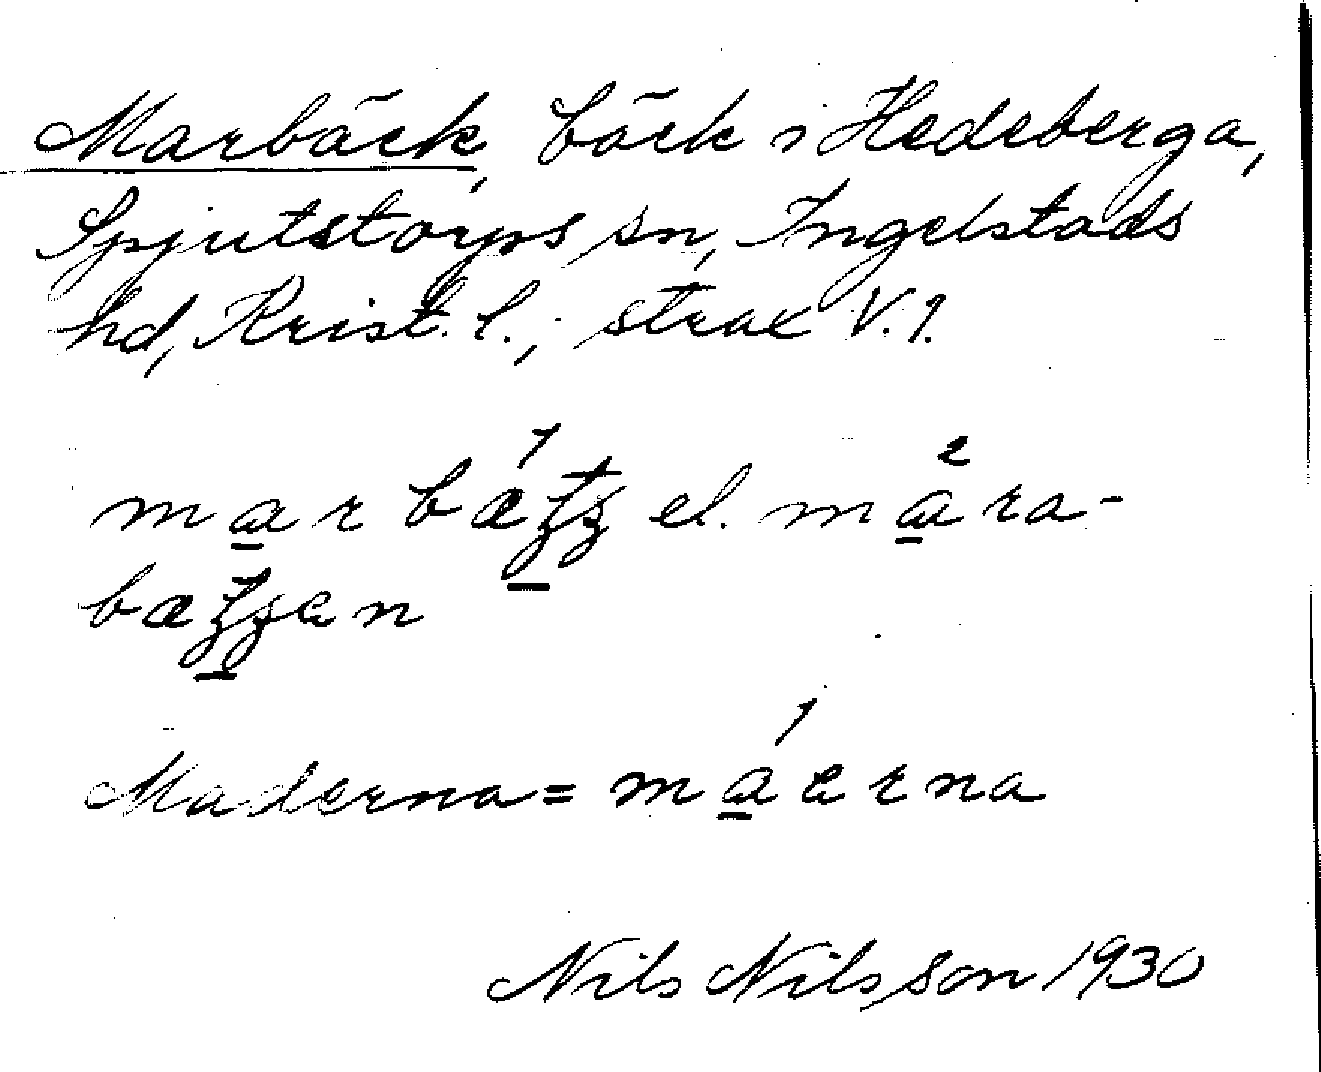 Marbäck, bäck i Hedeberga,
Spjutstorps sn, Ingelstads
hd, Krist. l., strax V. 1.
marbæʒʒ el. mara-
bæʒʒen
Maderna = maerna
Nils Nilsson 1930